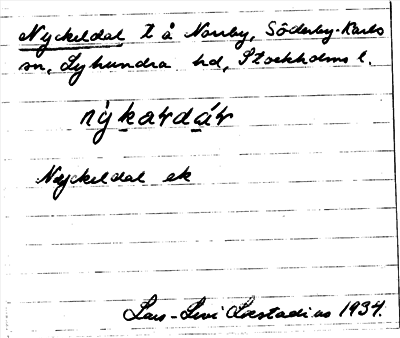 Nyckeldal t å Norrby, Söderby-Karls
sn, Lyhundra hd, Stockholms l.
nỳkaɾdáɾ
Nyckeldal ek
Lars-Levi Læstadius 1934.